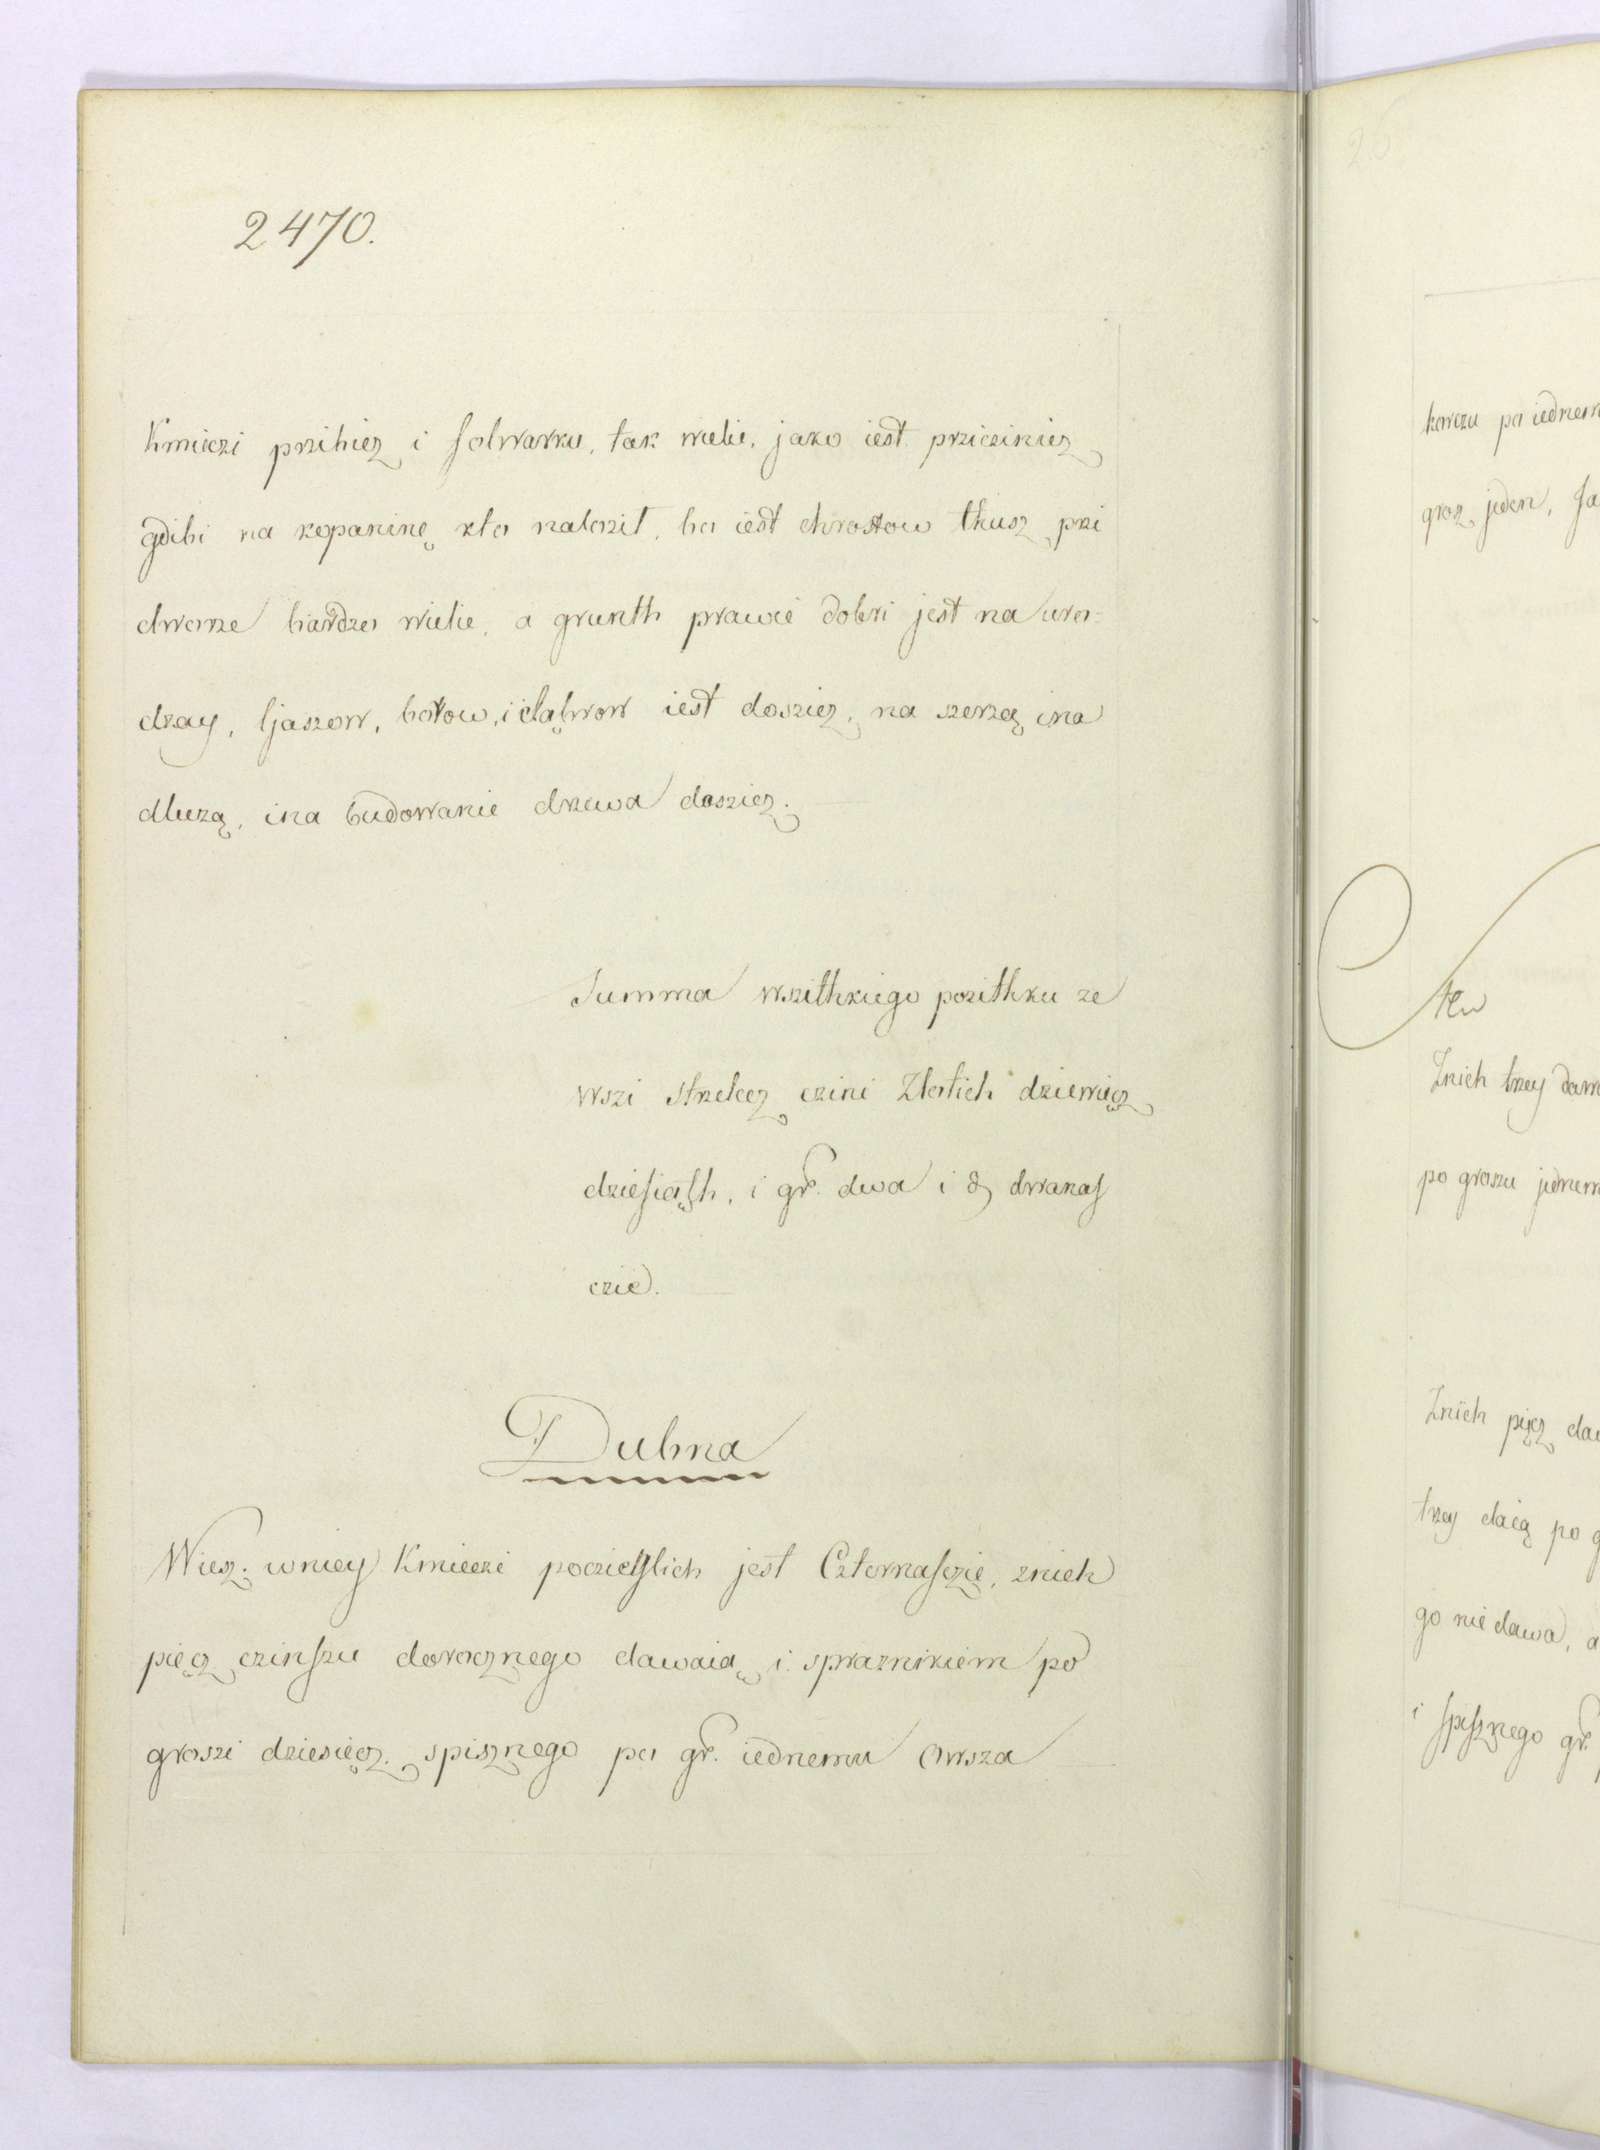 2470.
Kmieczi przibiez i folwarku, tak wielie, jako iest prziczinicz
gdibi na kopaninę kto nalozil, bo iest chrostow thusz pri
dworze bardzo wielie, a grunth prawie dobri jest na uro=
dzay, ljaszow, borow, i dąbrow iest doszicz, na szerzą ina
dluzą, ina budowanie drzewa doszicz.
Summa wszithkiego pozithku ze
wszi strzelcz czini Zlotich dziewięcz
dziesiąth, i gr. dwa i ₰ dwanas
czie.
Dubna
Wiesz. wniey Kmieczi poczieslich jest Czternasczie, znich
pięcz czinszu dorocznego dawaią i spraznikiem po
groszi dziesięcz, spisznego po gr. iednemu owsza
korczu po iednem
grosz jeden,
Znich trzy
po groszu jednem
Znich pięcz
trzy daią po
go nie dawa,
i spisznego gr.